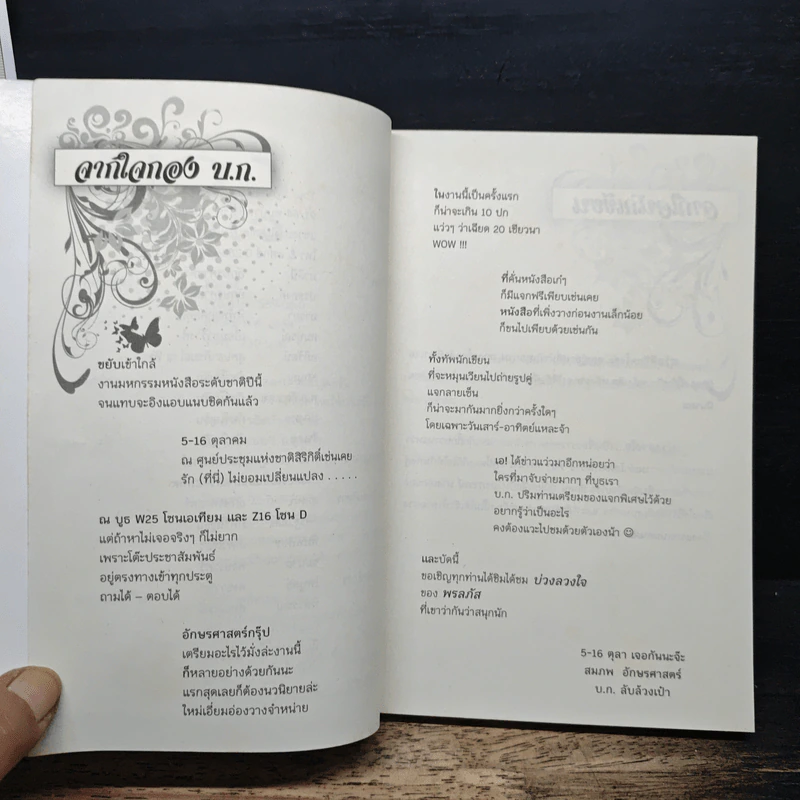 จากใจกอง บ.ก.
ขยับเข้าใกล้
งานมหกรรมหนังสือระดับชาติปีนี้
จนแทบจะอิงแอบแนบชิดกันแล้ว
5-16 ตุลาคม
ณ ศูนย์ประชุมแห่งชาติสิริกิติ์เช่นเคย
รัก (ที่นี่) ไม่ยอมเปลี่ยนแปลง . . . . .
ณ บูธ W25 โซนเอเทรียม และ Z16 โซน D
แต่ถ้าหาไม่เจอจริงๆ ก็ไม่ยาก
เพราะโต๊ะประชาสัมพันธ์
อยู่ตรงทางเข้าทุกประตู
ถามได้ – ตอบได้
อักษรศาสตร์กรุ๊ป
เตรียมอะไรไว้มั่งล่ะงานนี้
ก็หลายอย่างด้วยกันนะ
แรกสุดเลยก็ต้องนวนิยายล่ะ
ใหม่เอี่ยมอ่องวางจำหน่าย
ในงานนี้เป็นครั้งแรก
ก็น่าจะเกิน 10 ปก
แว่วๆ ว่าเฉียด 20 เชียวนา
WOW !!!
ที่คั่นหนังสือเก๋ๆ
ก็มีแจกฟรีเพียบเช่นเคย
หนังสือที่เพิ่งวางก่อนงานเล็กน้อย
ก็ขนไปเพียบด้วยเช่นกัน
ทั้งทัพนักเขียน
ที่จะหมุนเวียนไปถ่ายรูปคู่
แจกลายเซ็น
ก็น่าจะมากันมากยิ่งกว่าครั้งใดๆ
โดยเฉพาะวันเสาร์-อาทิตย์แหละจ้า
เอ! ได้ข่าวแว่วมาอีกหน่อยว่า
ใครที่มาจับจ่ายมากๆ ที่บูธเรา
บ.ก. ปริมท่านเตรียมของแจกพิเศษไว้ด้วย
อยากรู้ว่าเป็นอะไร
คงต้องแวะไปชมด้วยตัวเองน้า ☺
และบัดนี้
ขอเชิญทุกท่านได้ชิมได้ชม บ่วงลวงใจ
ของ พรลภัส
ที่เขาว่ากันว่าสนุกนัก
5-16 ตุลา เจอกันนะจ๊ะ
สมภพ อักษรศาสตร์
บ.ก. ลับล้วงเป๋า